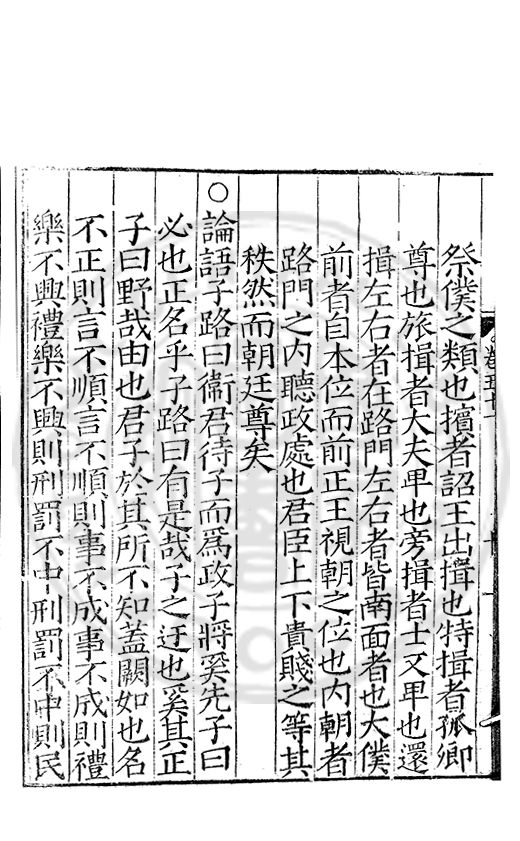 祭僕之類也擯者詔王出揖也特揖者孤卿
尊也旅揖者大夫卑也旁揖者士又卑也還
揖左右者在路門左右者皆南面者也大僕
前者自本位而前正王視朝之位也内朝者
路門之内聽政處也君臣上下貴賤之等其
秩然而朝廷尊矣
○論語子路曰衞君待子而爲政子將奚先子曰
必也正名乎子路曰有是哉子之迂也奚其正
子曰野哉由也君子於其所不知蓋闕如也名
不正則言不順言不順則事不成事不成則禮
樂不興禮樂不興則刑罰不中刑罰不中則民